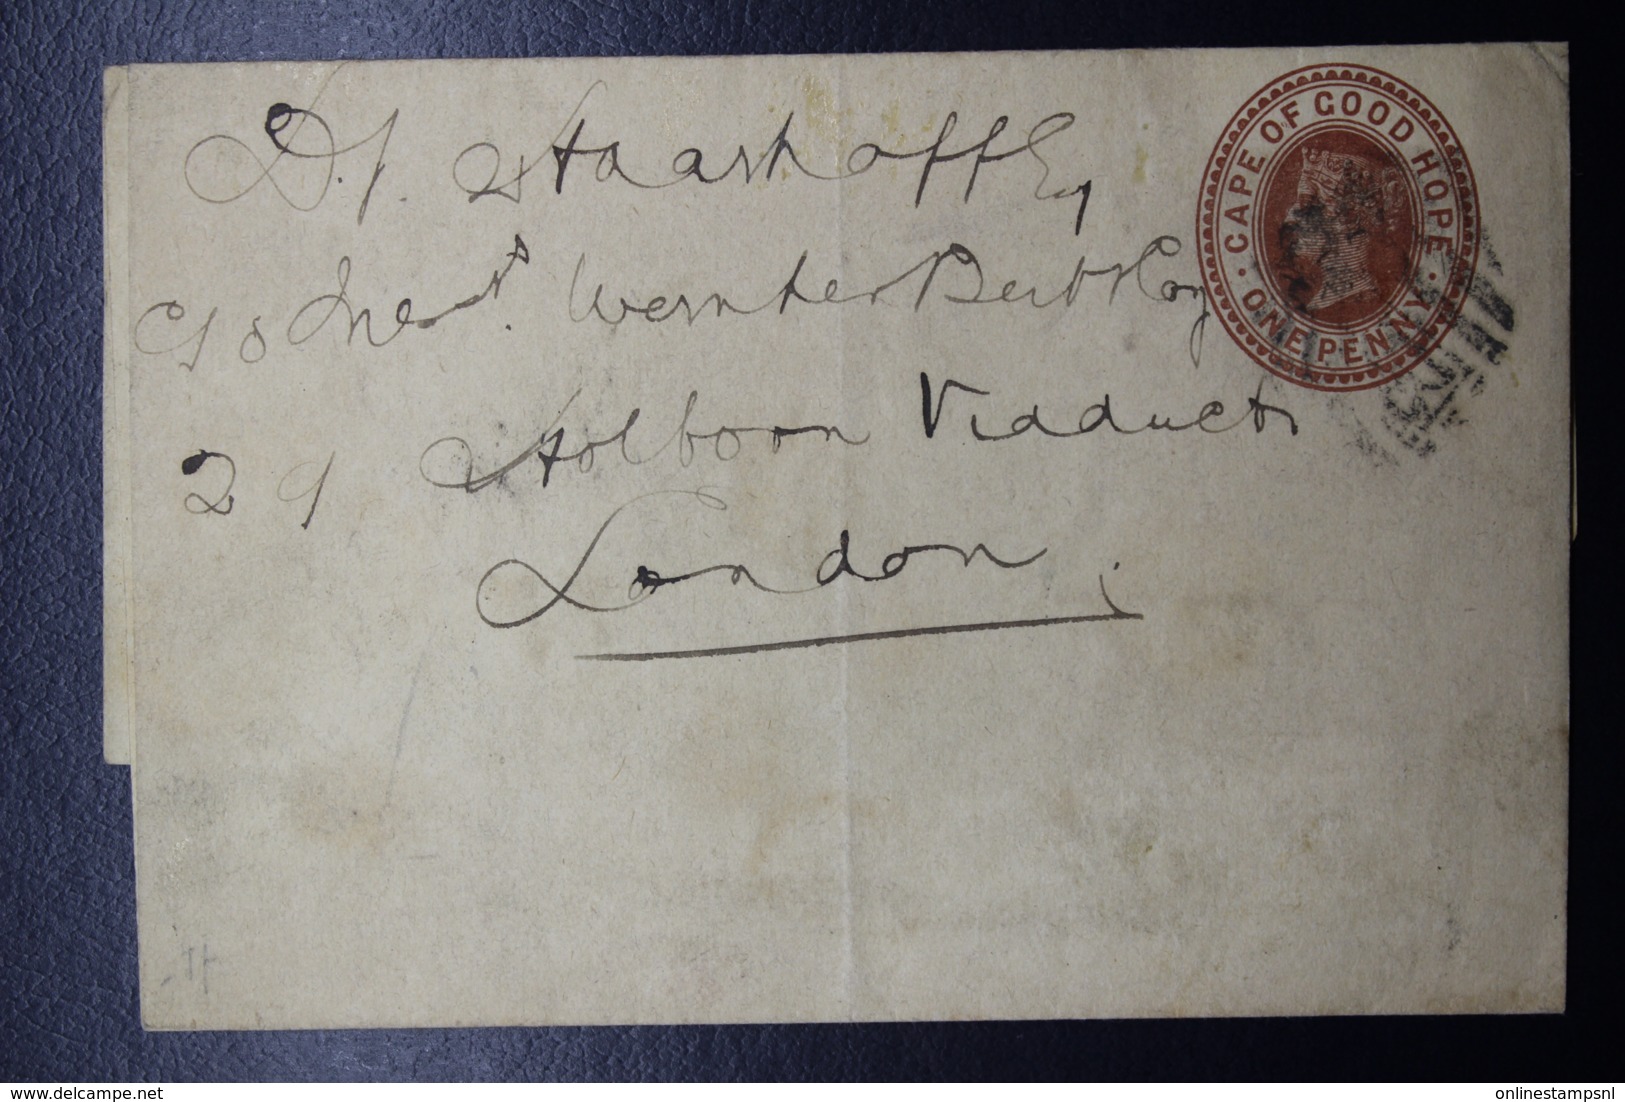 CAPE OF GOOD HOPE
ONE PENNY
D. J. Haarhoff Esq
c/o Mess rs. Wernher Beit & Coy
29 Holborn Viaduct
London.
delcampe.net
onlinestampsnl